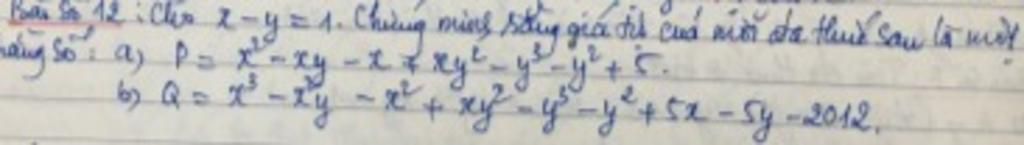 Bài Số 12 : Cho x - y = 1. Chứng minh rằng giá trị của mỗi đa thức sau là một
hằng số : a) P = x² - xy - x + xy² - y³ - y² + 5.
b) Q = x³ - x²y - x² + xy² - y³ - y² + 5x - 5y - 2012.